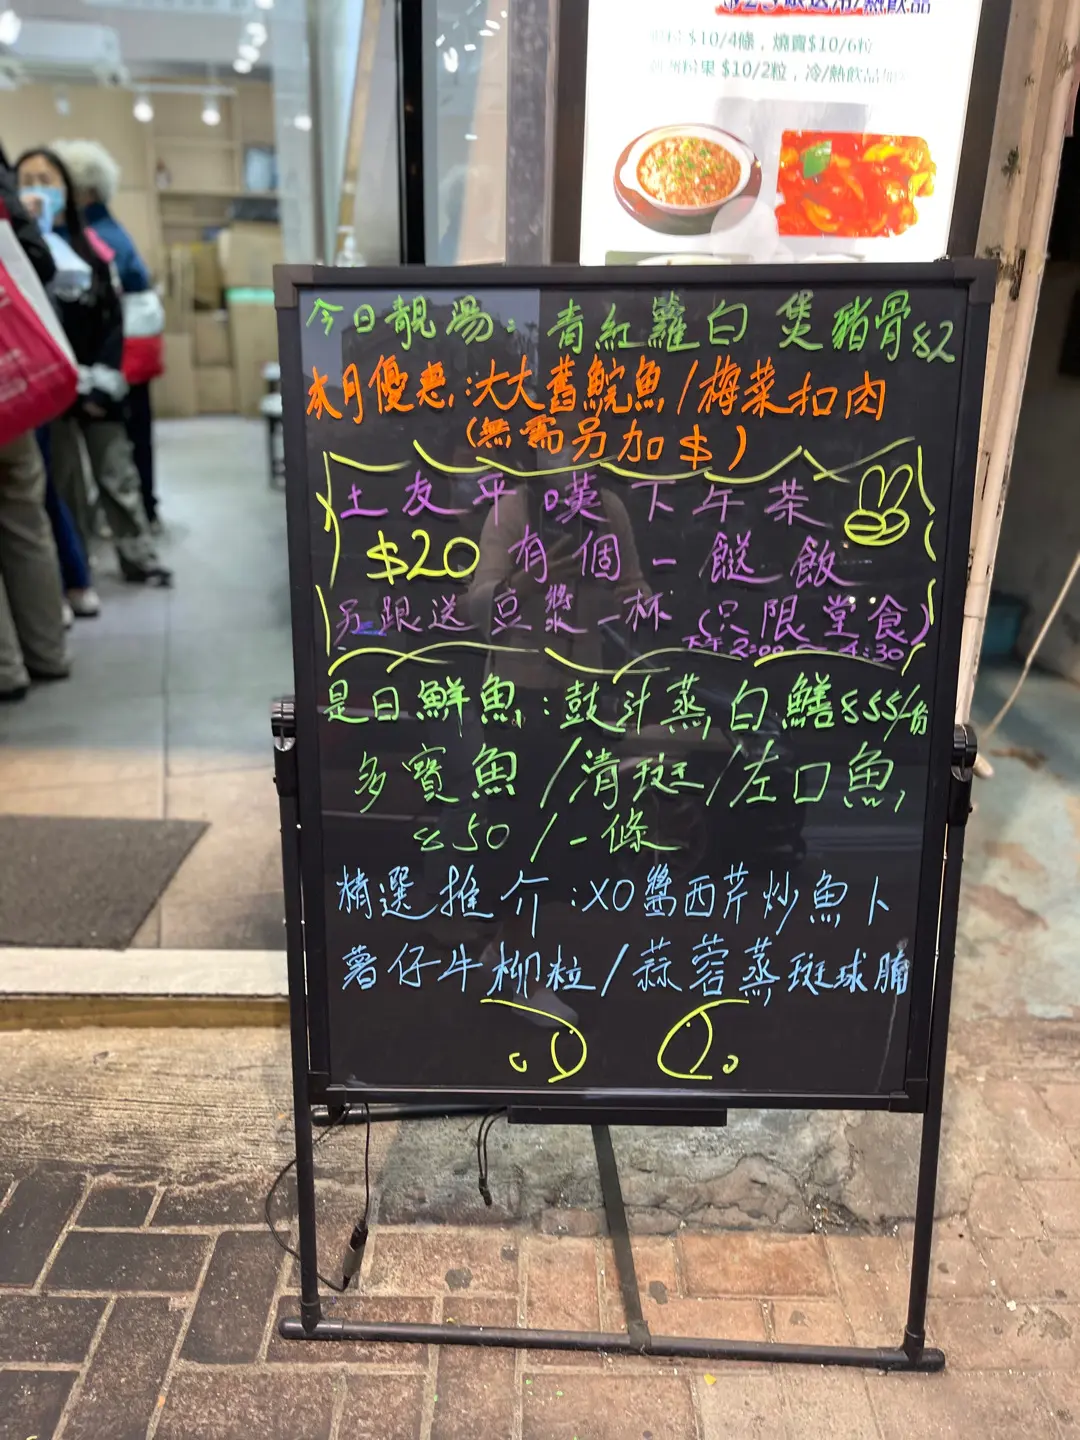 $23 跟送冷/熱飲品
$10/4條，燒賣$10/6粒
粉果 $10/2粒，冷/熱飲品加
今日靚湯：青紅蘿白煲豬骨$2
本月優惠：大大舊鯇魚/梅菜扣肉
(無需另加$)
土友平嘆下午茶
$20 有個一餸飯
另跟送豆漿一杯 (只限堂食)
下午2:00～4:30
是日鮮魚：豉汁蒸白鱔$55/份
多寶魚/清斑/左口魚
$50/一條
精選推介：XO醬西芹炒魚卜
薯仔牛柳粒/蒜蓉蒸斑球腩